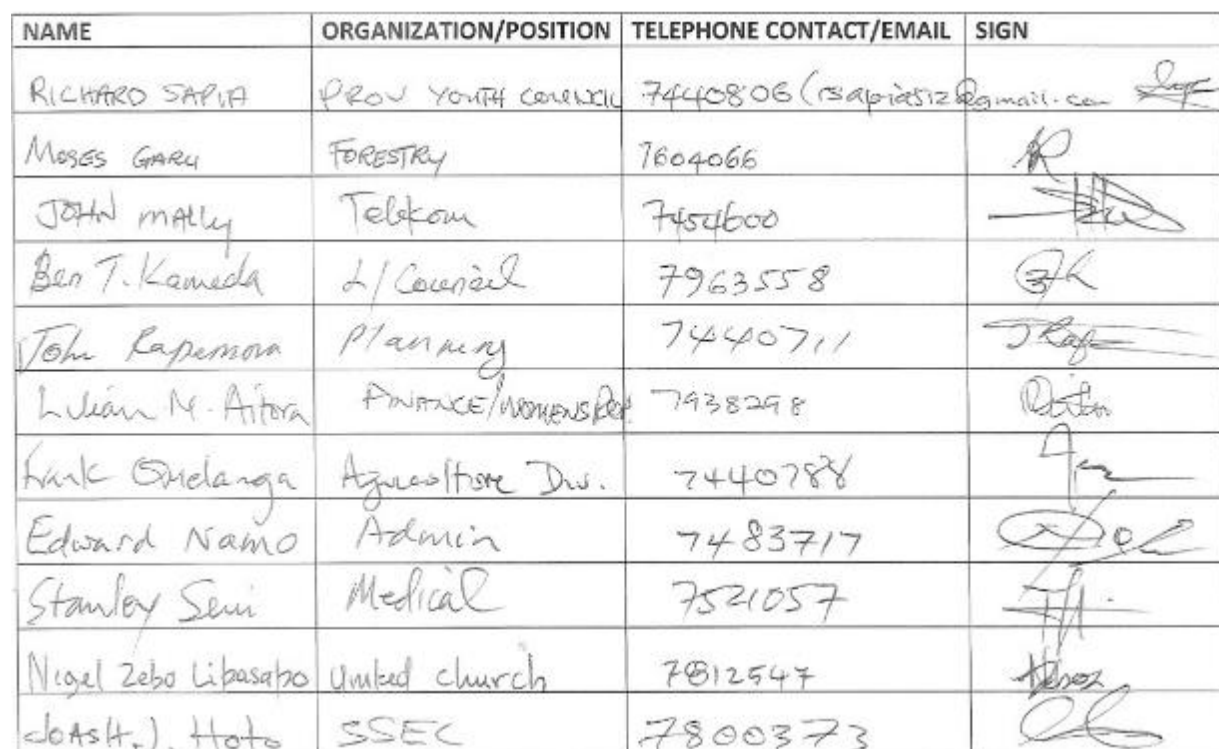 NAME ORGANIZATION/POSITION TELEPHONE CONTACT/EMAIL SIGN
RICHARD SAPIA PROV YOUTH COUNCIL 7440806 (rsapias12@gmail.com
MOSES GARU FORESTRY 7604066
JOHN MALLY Telekom 7454600
Ben T. Kameda L/Council 7963558
John Planning 7440711
Lilian M. Aitora FINANCE/WOMENS 7938298
Frank Agriculture Div. 7440788
Edward Namo Admin 7483717
Stanley Medical 7521057
Nigel Zebo Libasabo United church 7812547
Hoto SSEC 7800373